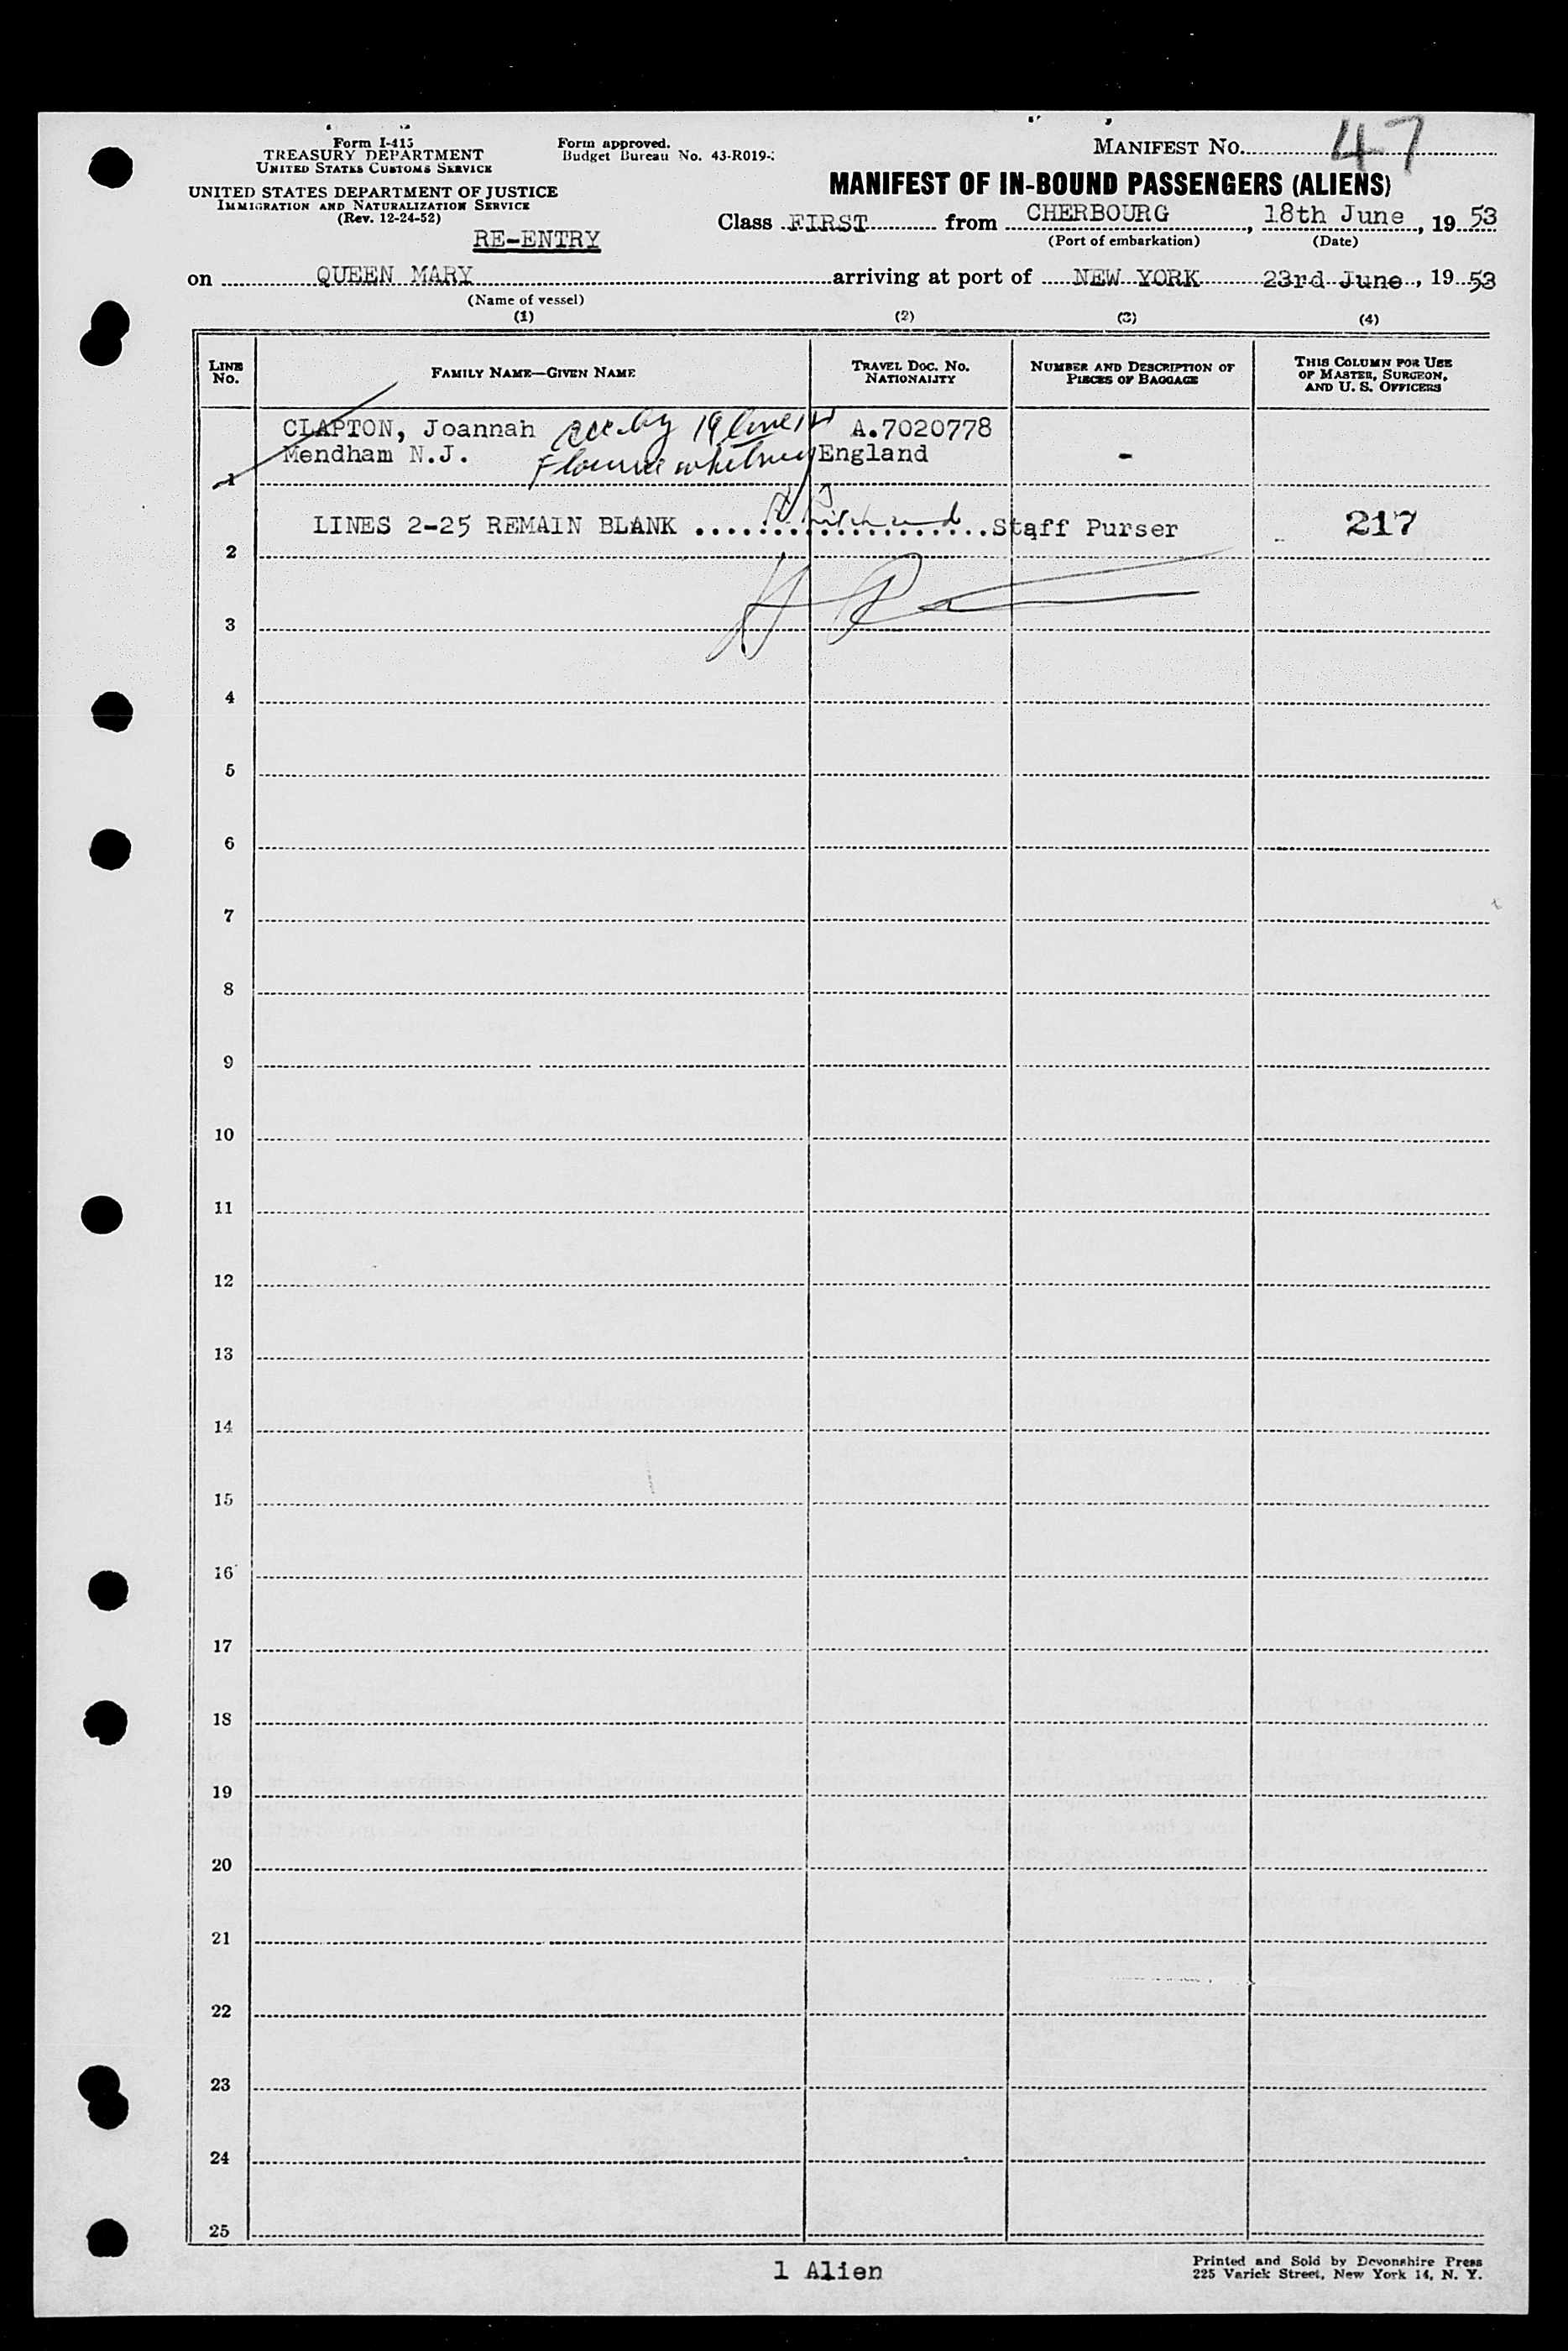 Form I-415
TREASURY DEPARTMENT
UNITED STATES CUSTOMS SERVICE
UNITED STATES DEPARTMENT OF JUSTICE
IMMIGRATION AND NATURALIZATION SERVICE
(Rev. 12-24-52)
RE-ENTRY
Form approved.
Budget Bureau No. 43-R019-
MANIFEST NO. 47
MANIFEST OF IN-BOUND PASSENGERS (ALIENS)
Class FIRST from CHERBOURG, 18th June, 19 53
(Port of embarkation) (Date)
on QUEEN MARY arriving at port of NEW YORK 23rd June, 19 53
(Name of vessel)
(1) (2) (3) (4)
LINE NO.
FAMILY NAME—GIVEN NAME
TRAVEL DOC. NO. NATIONALITY
NUMBER AND DESCRIPTION OF PIECES OF BAGGAGE
THIS COLUMN FOR USE OF MASTER, SURGEON, AND U. S. OFFICERS
CLAPTON, Joannah by 19 A.7020778
Mendham N.J. Whitney England -
1
LINES 2-25 REMAIN BLANK .................... Staff Purser 217
2
3
4
5
6
7
8
9
10
11
12
13
14
15
16
17
18
19
20
21
22
23
24
25
1 Alien
Printed and Sold by Devonshire Press
225 Varick Street, New York 14, N. Y.